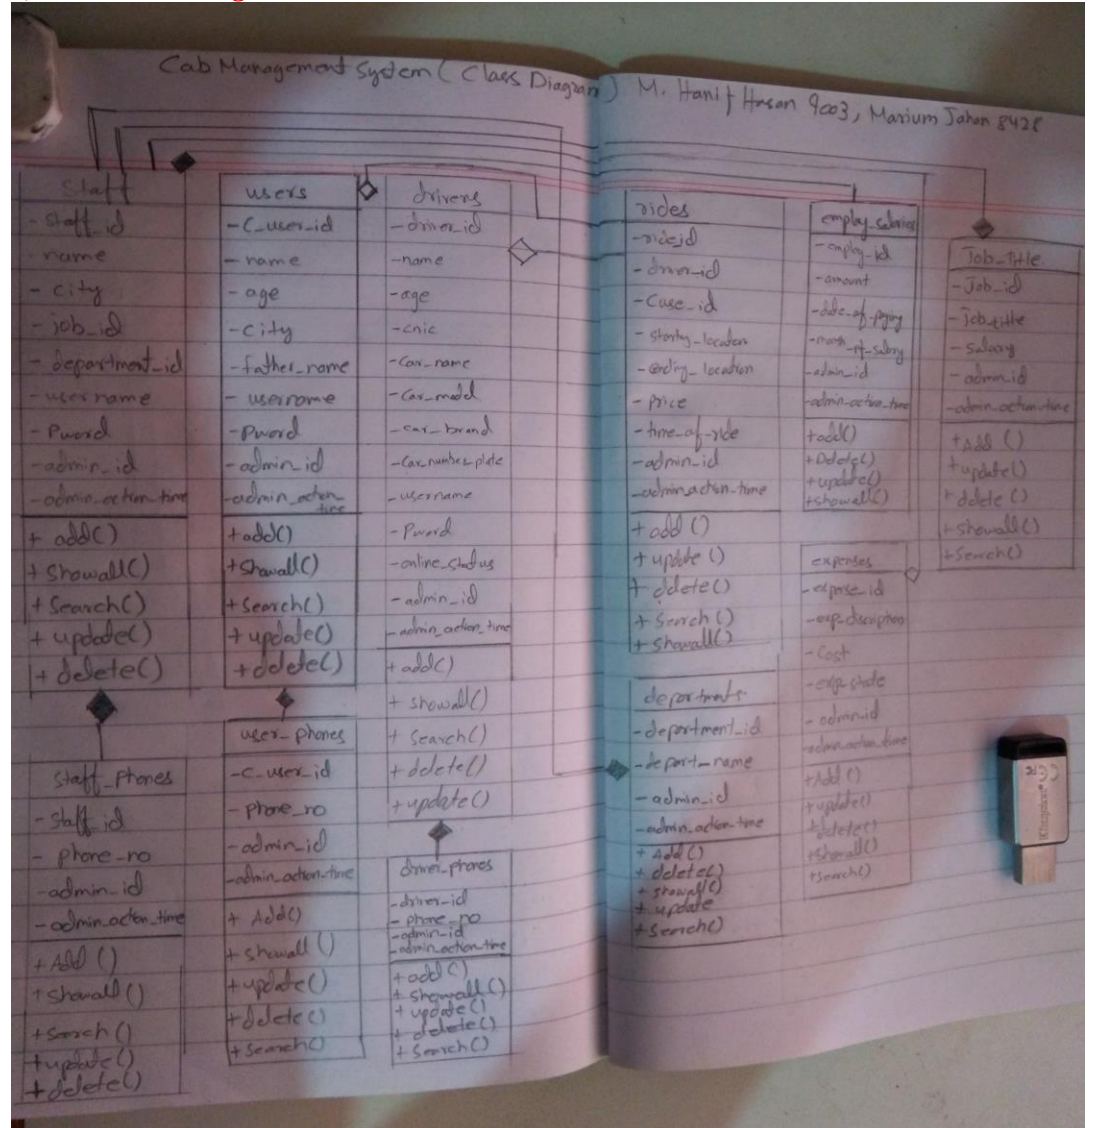 Cab Management System ( Class Diagram ) M. Hanif Hasan 9003, Marium Jahan 8428
Staff
- Staff_id
- name
- city
- job_id
- department_id
- username
- Pword
- admin_id
- admin_action_time
+ add()
+ Showall()
+ Search()
+ update()
+ delete()
Staff_Phones
- Staff_id
- phone_no
- admin_id
- admin_action_time
+ Add ()
+ Showall ()
+ Search ()
+ update()
+ delete()
users
- C_user_id
- name
- age
- City
- father_name
- username
- Pword
- admin_id
- admin_action_
time
+ add()
+ Showall()
+ Search()
+ update()
+ delete()
user_phones
- C_user_id
- phone_no
- admin_id
- admin_action_time
+ Add()
+ Showall ()
+ update()
+ delete()
+ Search()
drivers
- driver_id
- name
- age
- cnic
- Car_name
- Car_model
- car_brand
- Car_number_plate
- username
- Pword
- online_status
- admin_id
- admin_action_time
+ add()
+ showall()
+ Search()
+ delete()
+ update()
driver_phones
- driver_id
- phone_no
- admin_id
- admin_action_time
+ add()
+ showall()
+ update()
+ delete()
+ Search()
rides
- ride_id
- driver_id
- Cuse_id
- starting_location
- ending_location
- Price
- time_of_ride
- admin_id
- admin_action_time
+ add ()
+ update ()
+ delete()
+ Search ()
+ Showall()
departments
- department_id
- depart_name
- admin_id
- admin_action_time
+ Add()
+ delete()
+ showall()
+ update
+ Search()
employ_salaries
- employ_id
- amount
- date_of_paying
- month_of_salary
- admin_id
- admin_action_time
+ add()
+ Delete()
+ update()
+ Showall()
expenses
- expense_id
- exp_discription
- Cost
- admin_id
- admin_action_time
+ Add ()
+ update()
+ delete()
+ Showall()
+ Search()
Job_title
- Job_id
- job_title
- Salary
- admin_id
- admin_action_time
+ Add ()
+ update()
+ delete ()
+ Showall()
+ Search()
Kingston